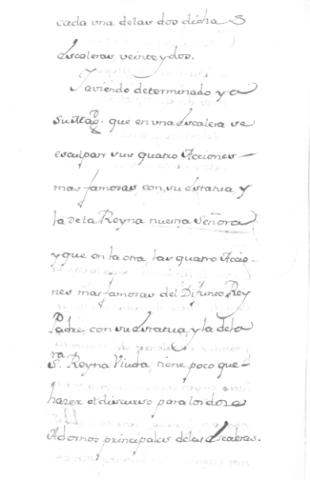 cada una delas dos dichas
Escaleras, veinte y dos.
Haviendo determinado ya
su Mag. que en una Escalera se
esculpan sus quatro Acciones
mas famosas con, su estatua, y
la dela Reyna nuestra Señora
y que en la otra las quatro Accio-
nes mas famosas del Difunto Rey
Padre con su Estatua, y la dela
S.ra Reyna Viuda, tiene poco que
hazer el discurso para los doze
Adornos principales delas Escaleras.